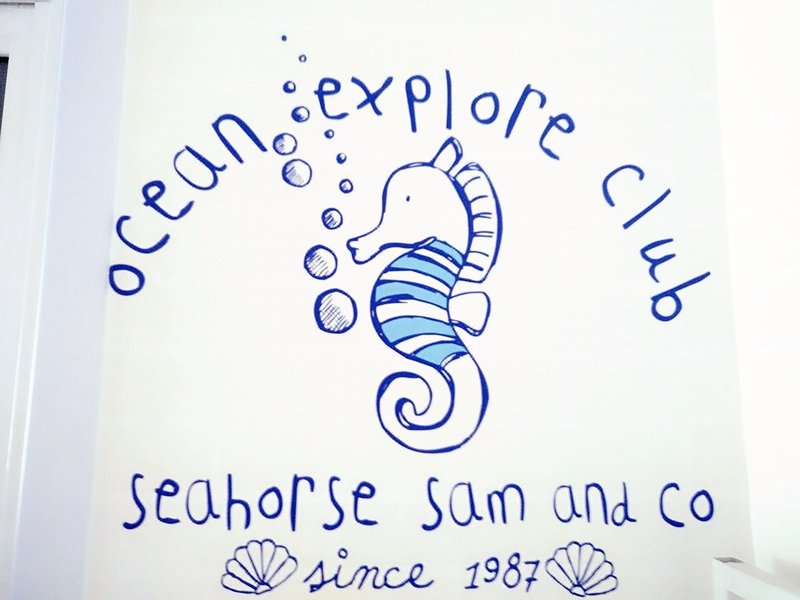 ocean explore club
seahorse sam and co
since 1987